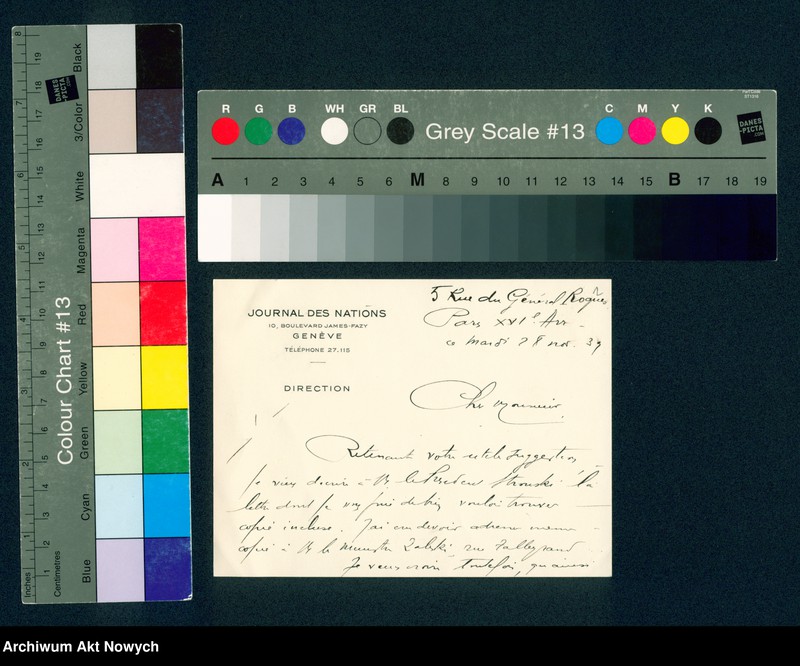 8
19
18
7
17
16
6
15
14
13
5
12
11
4
10
9
3
8
7
2
6
5
4
1
3
2
1
Inches
Centimetres
Colour Chart #13
Black
3/Color
White
Magenta
Red
Yellow
Green
Cyan
Blue
DANES
-PICTA
.COM
R G B WH GR BL
Grey Scale #13
C M Y K
DANES
-PICTA
.COM
A 1 2 3 4 5 6 M 8 9 10 11 12 13 14 15 B 17 18 19
JOURNAL DES NATIONS
10, BOULEVARD JAMES-FAZY
GENÈVE
TÉLÉPHONE 27.115
DIRECTION
5 Rue du Général Roques
Paris XVIe Arr.
ce mardi 28 nov. 39
Cher Monsieur,
Retenant votre utile suggestion,
je viens d'écrire à M. le Président Stronski la
lettre dont je vous prie de bien vouloir trouver
copie incluse. J'ai cru devoir adresser même
copie à M. le Ministre Zaleski, rue Talleyrand.
Je veux croire toutefois, qu'aussi
Archiwum Akt Nowych